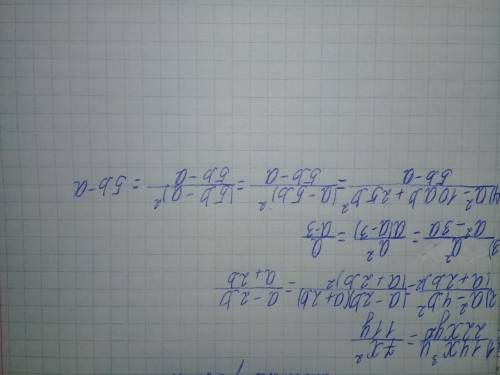 1) 14x³y / 22xy² = 7x² / 11y
2) a²-4b² / (a+2b)² = (a-2b)(a+2b) / (a+2b)² = a-2b / a+2b
3) a² / a²-3a = a² / a(a-3) = a / a-3
4) a²-10ab+25b² / 5b-a = (a-5b)² / 5b-a = (5b-a)² / 5b-a = 5b-a